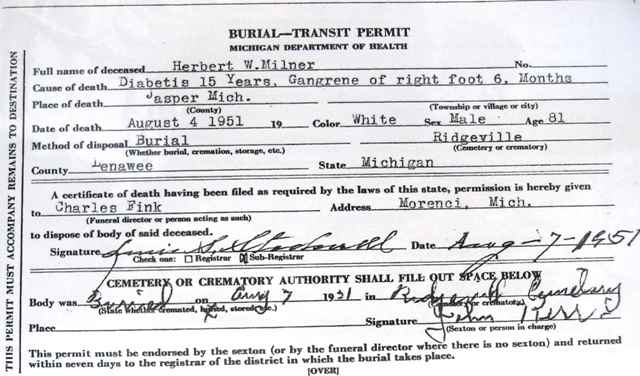 BURIAL—TRANSIT PERMIT
MICHIGAN DEPARTMENT OF HEALTH
Full name of deceased Herbert W. Milner No.
Cause of death Diabetis 15 Years, Gangrene of right foot 6, Months
Place of death Jasper Mich.
(County) (Township or village or city)
Date of death August 4 1951 19 Color White Sex Male Age 81
Method of disposal Burial Ridgeville
(Whether burial, cremation, storage, etc.) (Cemetery or crematory)
County Lenawee State Michigan
A certificate of death having been filed as required by the laws of this state, permission is hereby given
to Charles Fink Address Morenci, Mich.
(Funeral director or person acting as such)
to dispose of body of said deceased.
Signature Date Aug-7-1951
Check one: Registrar Sub-Registrar
CEMETERY OR CREMATORY AUTHORITY SHALL FILL OUT SPACE BELOW
Body was Buried on Aug 7 1951 in Ridgeville Cemetery
(State whether cremated, buried, stored, etc.) (Cemetery or crematory)
Place Signature John
(Sexton or person in charge)
This permit must be endorsed by the sexton (or by the funeral director where there is no sexton) and returned
within seven days to the registrar of the district in which the burial takes place.
[OVER]
THIS PERMIT MUST ACCOMPANY REMAINS TO DESTINATION